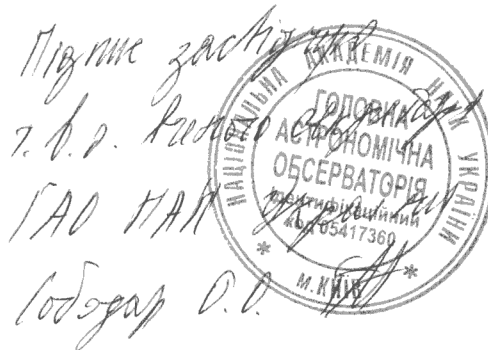 Підпис засвідчую
т.в.о. Вченого секретаря
ГАО НАН України
Соболар О.О.
НАЦІОНАЛЬНА АКАДЕМІЯ НАУК УКРАЇНИ
ГОЛОВНА
АСТРОНОМІЧНА
ОБСЕРВАТОРІЯ
Ідентифікаційний
код 05417360
* М.КИЇВ *